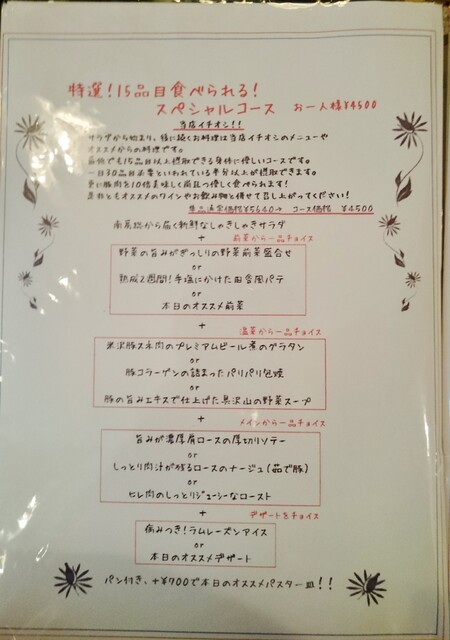 特選！15品目食べられる！
スペシャルコース お一人様¥4500
当店イチオシ！！
サラダから始まり、様に続くお料理は当店イチオシのメニューや
オススメからの料理です。
最低でも15品目以上摂取できる身体に優しいコースです。
一日30品目必要といわれている半分以上が摂取できます。
更に豚肉を10倍美味しく尚且つ優しく食べられます！
是非ともオススメのワインやお飲み物と併せて召し上がってください！
単品通常価格¥5640→ コース価格 ¥4500
南房総から届く新鮮なしゃきしゃきサラダ
+ 前菜から一品チョイス
野菜の旨みがぎっしりの野菜前菜盛合せ
or
熟成2週間！手塩にかけた田舎風パテ
or
本日のオススメ前菜
+ 温菜から一品チョイス
米沢豚スネ肉のプレミアムビール煮のグラタン
or
豚コラーゲンの詰まったパリパリ包焼
or
豚の旨みエキスで仕上げた具沢山の野菜スープ
+ メインから一品チョイス
旨みが濃厚肩ロースの厚切りソテー
or
しっとり肉汁が残るロースのナージュ(茹で豚)
or
ヒレ肉のしっとりジューシーなロースト
+ デザートをチョイス
病みつき！ラムレーズンアイス
or
本日のオススメデザート
パン付き、+¥700で本日のオススメパスタ一皿！！